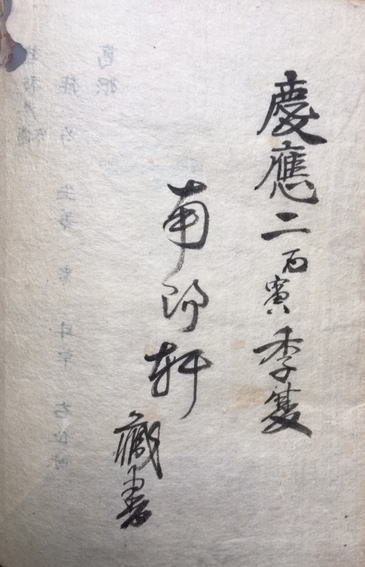 慶應二丙寅季夏
南陽軒
藏書